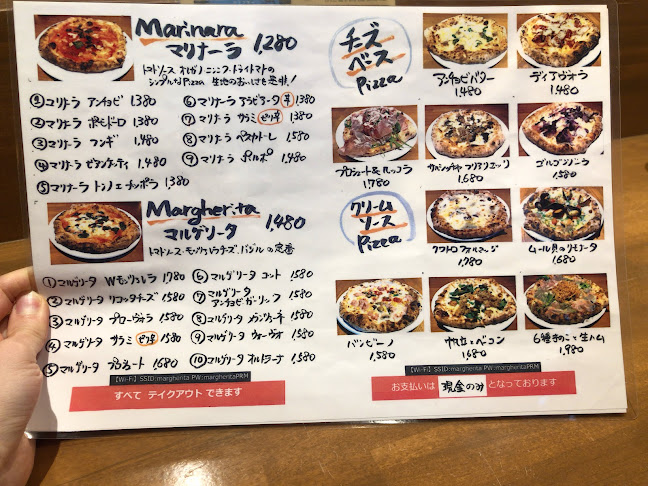 Marinara
マリナーラ 1,280
トマトソース オレガノ ニンニク ドライトマトの
シンプルなPizza 生地のおいしさも是非!
マリナーラ アンチョビ 1380
② マリナーラ ポモドーロ 1380
③ マリナーラ フンギ 1,480
④ マリナーラ 1,480
⑤ マリナーラ トンノ エ チッポラ 1380
⑥ マリナーラ アラビアータ 辛 1380
⑦ マリナーラ サラミ ピリ辛 1380
⑧ マリナーラ ペスカトーレ 1,580
⑨ マリナーラ ポルポ 1,480
Margherita
マルゲリータ 1,480
トマトソース・モッツァレラチーズ・バジルの定番
① マルゲリータ Wモッツァレラ 1780
② マルゲリータ リコッタチーズ 1,580
③ マルゲリータ プローヴォラ 1,580
④ マルゲリータ サラミ ピリ辛 1,580
⑤ マルゲリータ プロシュート 1,680
⑥ マルゲリータ コット 1,580
⑦ マルゲリータ アンチョビ ガーリック 1,580
⑧ マルゲリータ 1,580
⑨ マルゲリータ ウォーヴォ 1,580
⑩ マルゲリータ オルトラーナ 1,580
【Wi-Fi】SSID:margherita PW:margheritaPRM
すべて テイクアウト できます
チーズ
ベース
Pizza
アンチョビバター
1,480
ディアヴォラ
1,480
プロシュート&ルッコラ
1,780
1,680
ゴルゴンゾーラ
1,580
クリーム
ソース
Pizza
クワトロフォルマッジ
1,780
ムール貝のリモナータ
1,680
バンビーノ
1,580
ベーコン
1,680
6種きのこと生ハム
1,980
【Wi-Fi】SSID:margherita PW:margheritaPRM
お支払いは 現金のみ となっております